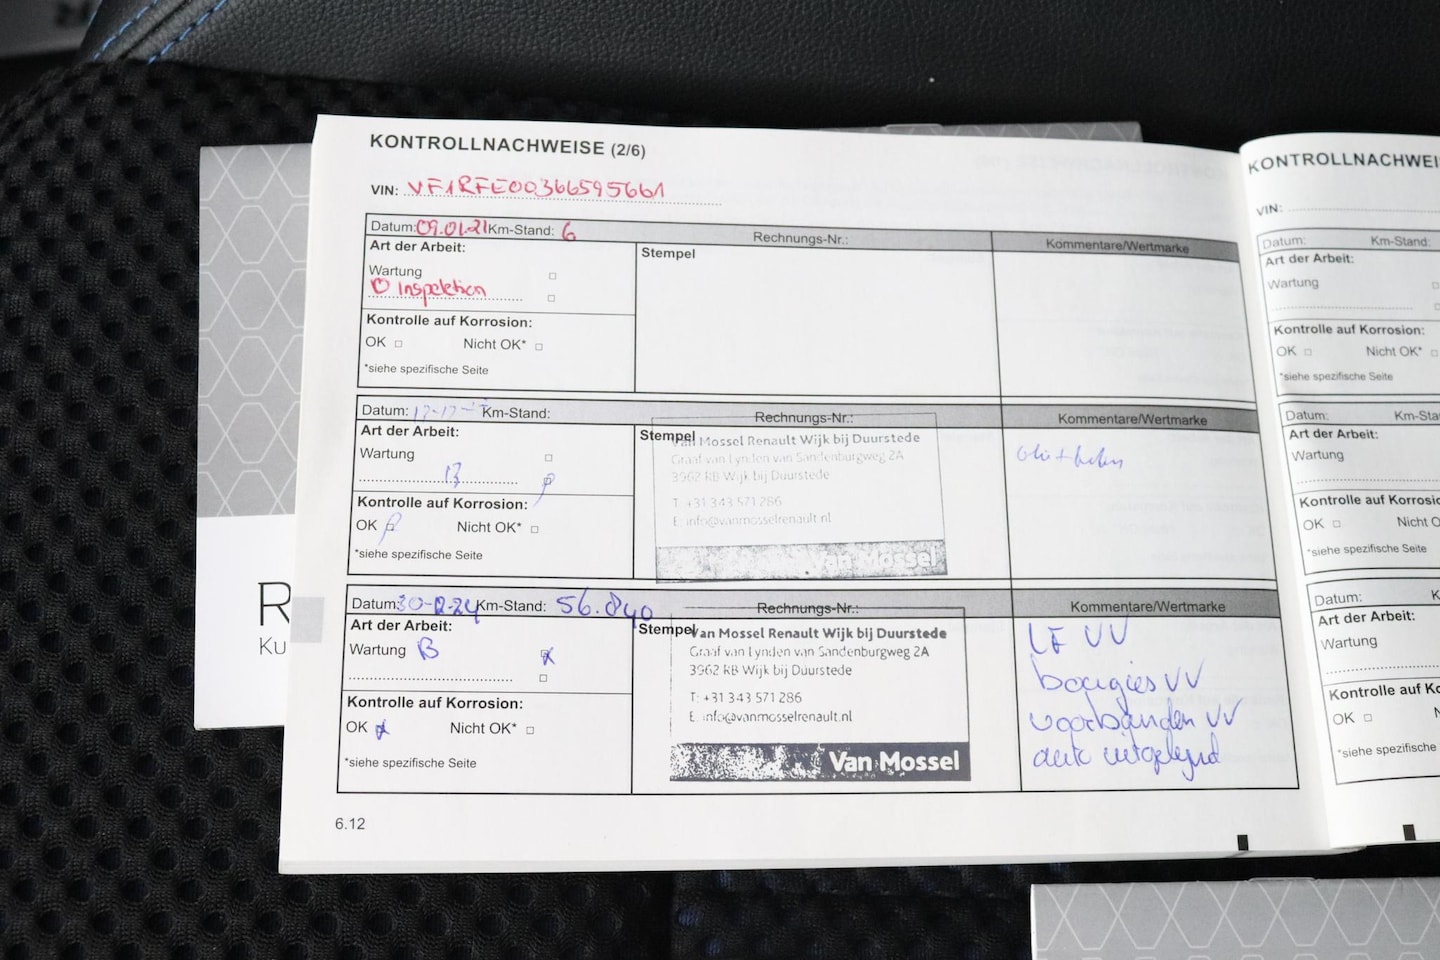 KONTROLLNACHWEISE (2/6)
VIN: VF1RFE00366595661
Datum: 09.01.21 Km-Stand: 6 Rechnungs-Nr.: Kommentare/Wertmarke
Art der Arbeit: Stempel
Wartung
O Inspektion
Kontrolle auf Korrosion:
OK Nicht OK*
*siehe spezifische Seite
Datum: Km-Stand: Rechnungs-Nr.: Kommentare/Wertmarke
Art der Arbeit: Stempel
Van Mossel Renault Wijk bij Duurstede
Graaf van Lynden van Sandenburgweg 2A
3962 RB Wijk bij Duurstede
T: +31 343 571 286
E: info@vanmosselrenault.nl
Van Mossel
Wartung
Kontrolle auf Korrosion:
OK Nicht OK*
*siehe spezifische Seite
Datum: 30-12-24 Km-Stand: 56.840 Rechnungs-Nr.: Kommentare/Wertmarke
Art der Arbeit: Stempel
Van Mossel Renault Wijk bij Duurstede
Graaf van Lynden van Sandenburgweg 2A
3962 RB Wijk bij Duurstede
T: +31 343 571 286
E: info@vanmosselrenault.nl
Van Mossel
Wartung B
Kontrolle auf Korrosion:
OK Nicht OK*
*siehe spezifische Seite
VV
bougies VV
voorbanden VV
auto uitgelijnd
6.12
KONTROLLNACHWEI
VIN:
Datum: Km-Stand:
Art der Arbeit:
Wartung
Kontrolle auf Korrosion:
OK Nicht OK*
*siehe spezifische Seite
Datum: Km-Sta
Art der Arbeit:
Wartung
Kontrolle auf Korrosio
OK Nicht O
*siehe spezifische Seite
Datum: K
Art der Arbeit:
Wartung
Kontrolle auf Ko
OK Nic
*siehe spezifische
R
Ku